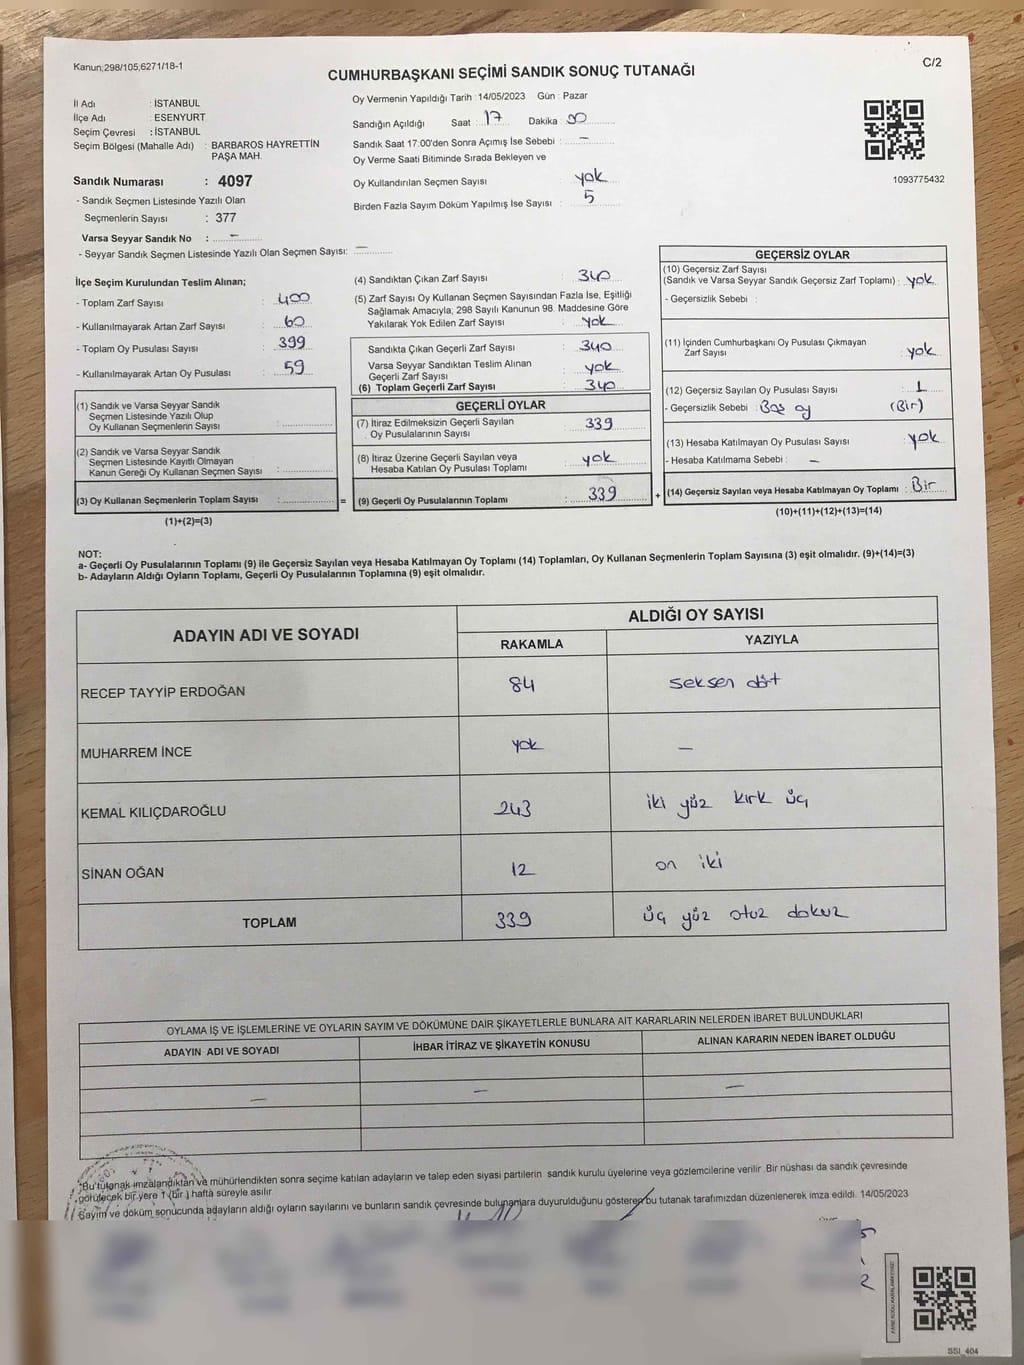 Kanun;298/105,6271/18-1
C/2
CUMHURBAŞKANI SEÇİMİ SANDIK SONUÇ TUTANAĞI
İl Adı : İSTANBUL
İlçe Adı : ESENYURT
Seçim Çevresi : İSTANBUL
Seçim Bölgesi (Mahalle Adı) : BARBAROS HAYRETTİN
PAŞA MAH.
Sandık Numarası : 4097
- Sandık Seçmen Listesinde Yazılı Olan
Seçmenlerin Sayısı : 377
Varsa Seyyar Sandık No : –
- Seyyar Sandık Seçmen Listesinde Yazılı Olan Seçmen Sayısı: –
Oy Vermenin Yapıldığı Tarih : 14/05/2023 Gün : Pazar
Sandığın Açıldığı Saat : 17 Dakika : 00
Sandık Saat 17:00'den Sonra Açımış İse Sebebi : –
Oy Verme Saati Bitiminde Sırada Bekleyen ve
Oy Kullandırılan Seçmen Sayısı : yok
Birden Fazla Sayım Döküm Yapılmış İse Sayısı : 5
1093775432
İlçe Seçim Kurulundan Teslim Alınan;
- Toplam Zarf Sayısı : 400
- Kullanılmayarak Artan Zarf Sayısı : 60
- Toplam Oy Pusulası Sayısı : 399
- Kullanılmayarak Artan Oy Pusulası : 59
(1) Sandık ve Varsa Seyyar Sandık
Seçmen Listesinde Yazılı Olup
Oy Kullanan Seçmenlerin Sayısı :
(2) Sandık ve Varsa Seyyar Sandık
Seçmen Listesinde Kayıtlı Olmayan
Kanun Gereği Oy Kullanan Seçmen Sayısı :
(3) Oy Kullanan Seçmenlerin Toplam Sayısı :
(1)+(2)=(3)
(4) Sandıktan Çıkan Zarf Sayısı : 340
(5) Zarf Sayısı Oy Kullanan Seçmen Sayısından Fazla İse, Eşitliği
Sağlamak Amacıyla, 298 Sayılı Kanunun 98. Maddesine Göre
Yakılarak Yok Edilen Zarf Sayısı : yok
Sandıkta Çıkan Geçerli Zarf Sayısı : 340
Varsa Seyyar Sandıktan Teslim Alınan
Geçerli Zarf Sayısı : yok
(6) Toplam Geçerli Zarf Sayısı : 340
GEÇERLİ OYLAR
(7) İtiraz Edilmeksizin Geçerli Sayılan
Oy Pusulalarının Sayısı : 339
(8) İtiraz Üzerine Geçerli Sayılan veya
Hesaba Katılan Oy Pusulası Toplamı : yok
= (9) Geçerli Oy Pusulalarının Toplamı : 339 +
GEÇERSİZ OYLAR
(10) Geçersiz Zarf Sayısı
(Sandık ve Varsa Seyyar Sandık Geçersiz Zarf Toplamı) : yok
- Geçersizlik Sebebi :
(11) İçinden Cumhurbaşkanı Oy Pusulası Çıkmayan
Zarf Sayısı : yok
(12) Geçersiz Sayılan Oy Pusulası Sayısı : 1
- Geçersizlik Sebebi : Boş oy (Bir)
(13) Hesaba Katılmayan Oy Pusulası Sayısı : yok
- Hesaba Katılmama Sebebi : –
(14) Geçersiz Sayılan veya Hesaba Katılmayan Oy Toplamı : Bir
(10)+(11)+(12)+(13)=(14)
NOT:
a- Geçerli Oy Pusulalarının Toplamı (9) ile Geçersiz Sayılan veya Hesaba Katılmayan Oy Toplamı (14) Toplamları, Oy Kullanan Seçmenlerin Toplam Sayısına (3) eşit olmalıdır. (9)+(14)=(3)
b- Adayların Aldığı Oyların Toplamı, Geçerli Oy Pusulalarının Toplamına (9) eşit olmalıdır.
ADAYIN ADI VE SOYADI
ALDIĞI OY SAYISI
RAKAMLA YAZIYLA
RECEP TAYYİP ERDOĞAN 84 seksen dört
MUHARREM İNCE yok –
KEMAL KILIÇDAROĞLU 243 iki yüz kırk üç
SİNAN OĞAN 12 on iki
TOPLAM 339 üç yüz otuz dokuz
OYLAMA İŞ VE İŞLEMLERİNE VE OYLARIN SAYIM VE DÖKÜMÜNE DAİR ŞİKAYETLERLE BUNLARA AİT KARARLARIN NELERDEN İBARET BULUNDUKLARI
ADAYIN ADI VE SOYADI İHBAR İTİRAZ VE ŞİKAYETİN KONUSU ALINAN KARARIN NEDEN İBARET OLDUĞU
– – –
*Bu tutanak imzalandıktan ve mühürlendikten sonra seçime katılan adayların ve talep eden siyasi partilerin sandık kurulu üyelerine veya gözlemcilerine verilir. Bir nüshası da sandık çevresinde
görülecek bir yere 1 (bir) hafta süreyle asılır.
Sayım ve döküm sonucunda adayların aldığı oyların sayılarını ve bunların sandık çevresinde bulunanlara duyurulduğunu gösteren bu tutanak tarafımızdan düzenlenerek imza edildi. 14/05/2023
SSI_404